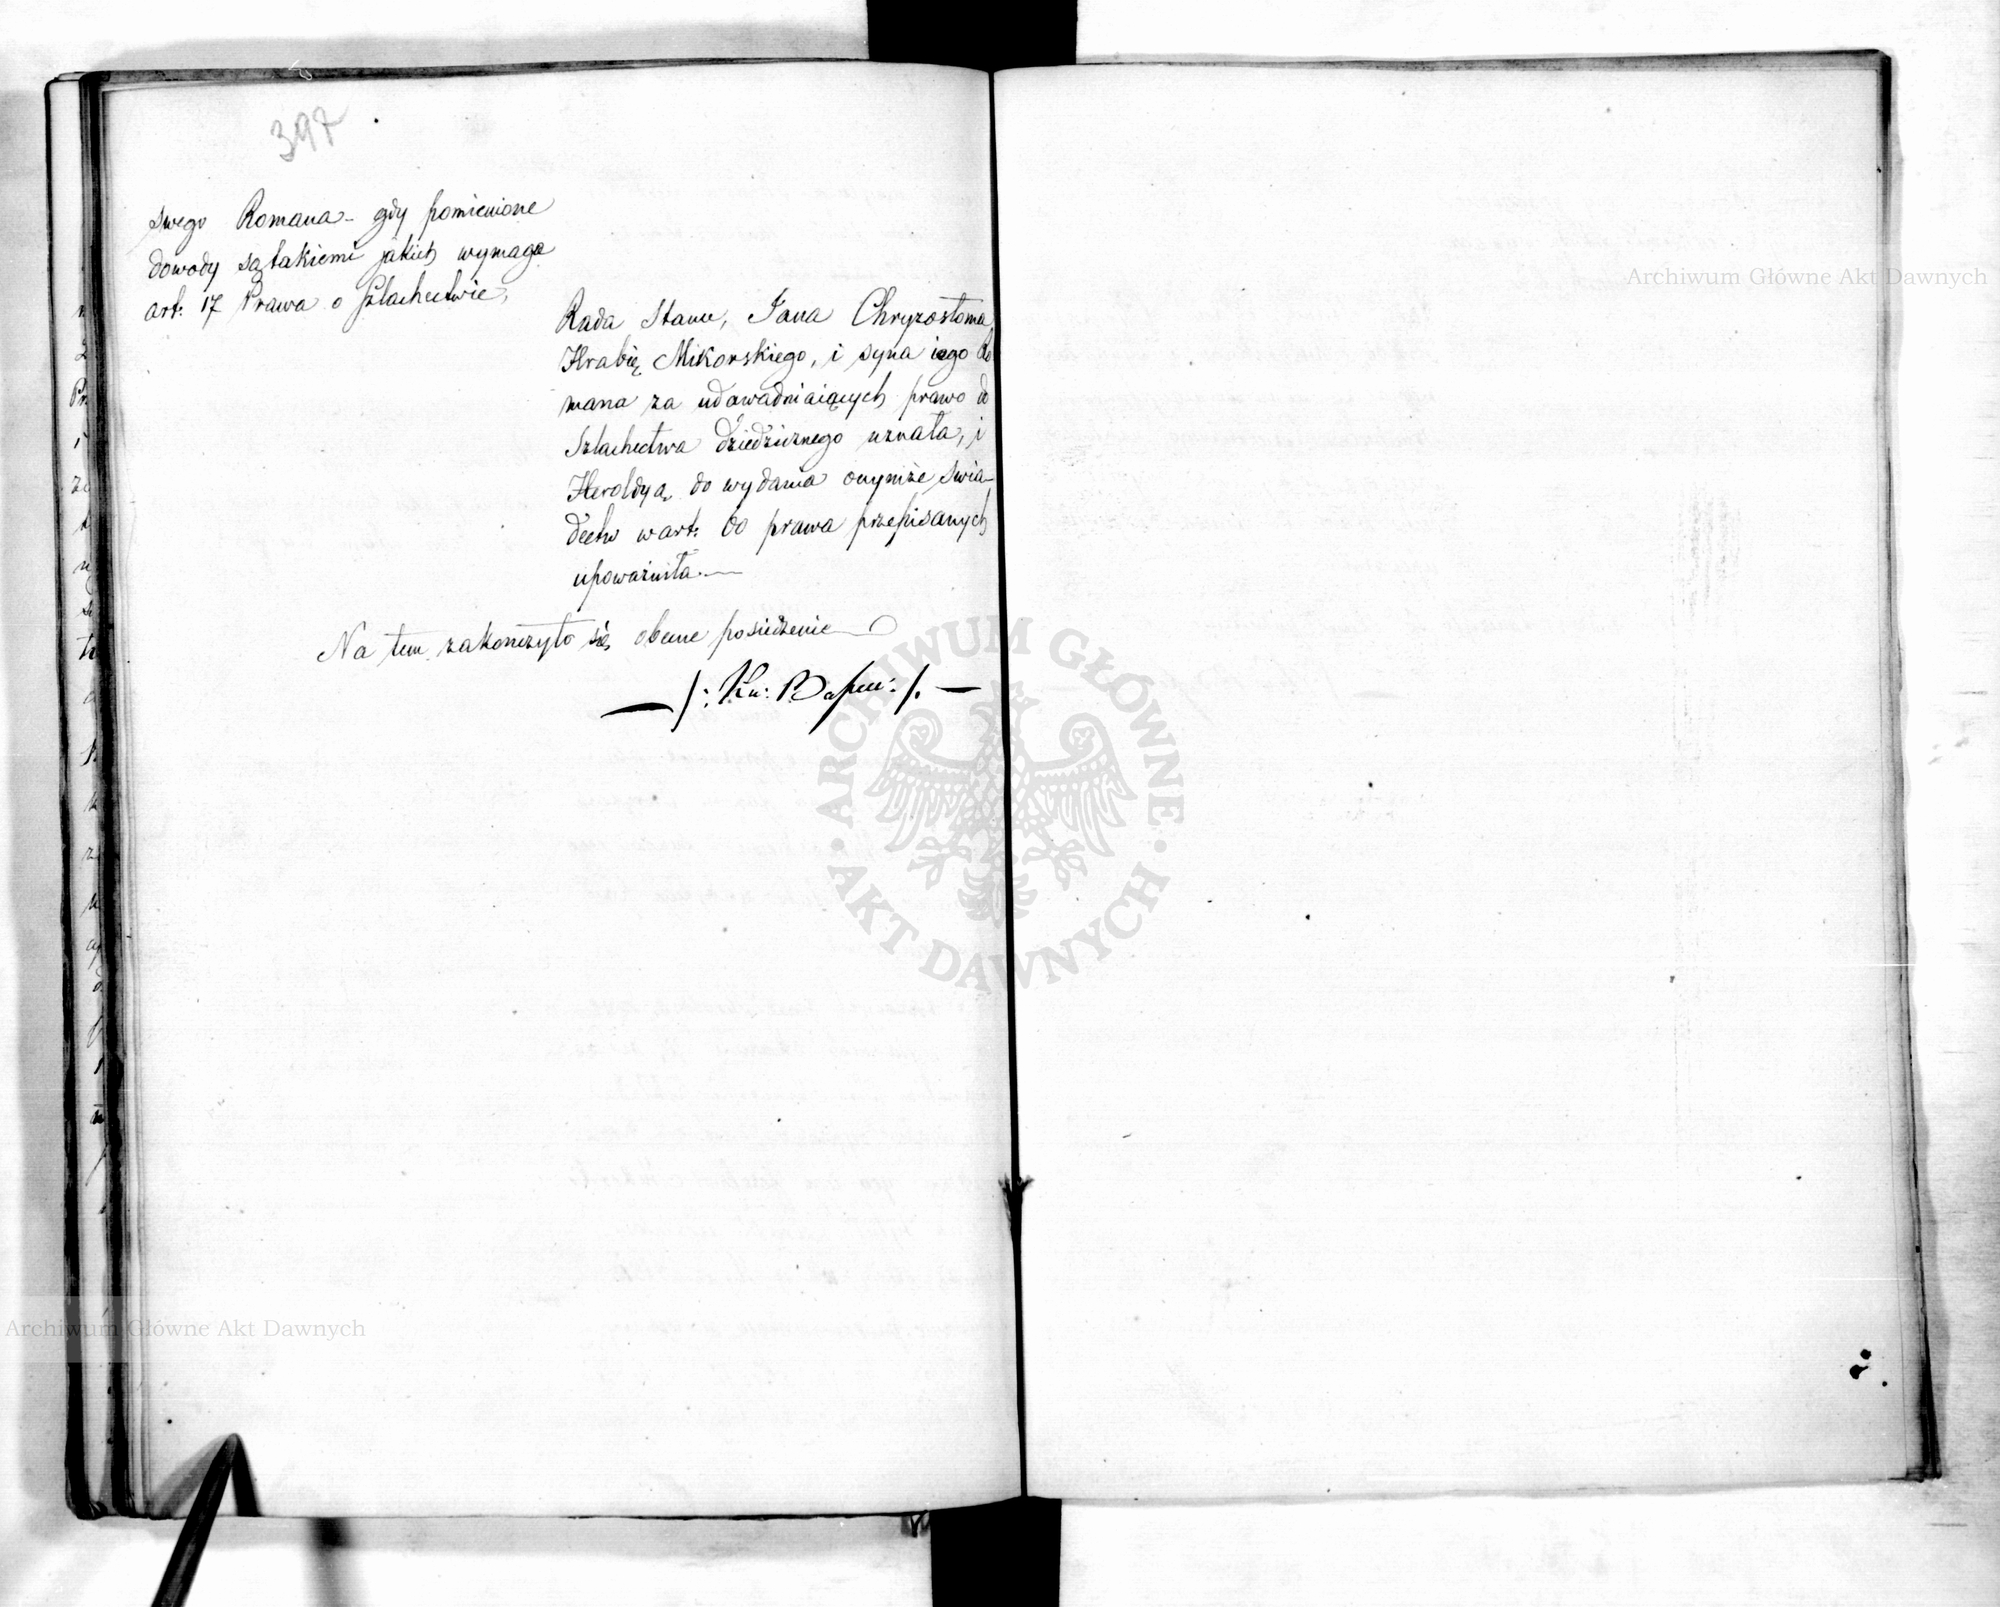 397
swego Romana – gdy pomienione
dowody są takiemi jakich wymaga
art: 17 Prawa o Szlachectwie,
Rada Stanu, Jana Chryzostoma
Hrabię Mikorskiego, i syna iego Ro
mana za udowadniaiących prawo do
Szlachectwa dziedzicznego uznała, i
Heroldyą do wydania onymże świa-
dectw w art: prawa przepisanych
upoważniła.—
Na tem zakończyło się obecne posiedzenie
Archiwum Główne Akt Dawnych
ARCHIWUM GŁÓWNE AKT DAWNYCH
Archiwum Główne Akt Dawnych